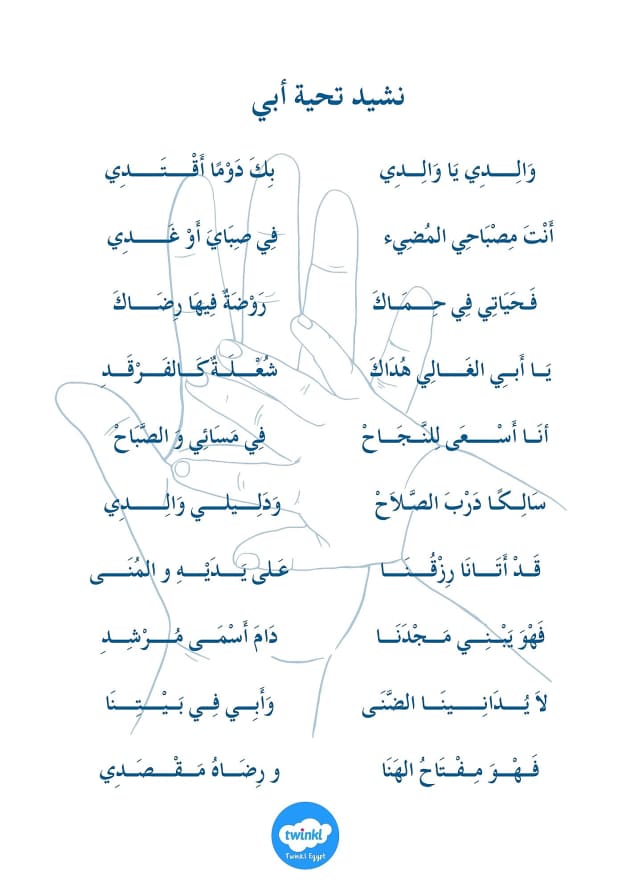 نشيد تحية أبي
وَالِـــدِي يَا وَالِـدِي بِكَ دَوْمًا أَقْـــتَـــدِي
أَنْتَ مِصْبَاحِي المُضِيء فِي صِبَايَ أَوْ غَـــدِي
فَـحَيَاتِي فِي حِـــمَـاكَ رَوْضَةٌ فِيهَا رِضَـــاكَ
يَـا أَبـِي الغَـــالِي هُدَاكَ شُعْـــلَـةٌ كَـالفَـرْقَـدِ
أنَـا أَسْـــعَى لِلنَّـجَـاحْ فِي مَسَائِي وَ الصَّبَاحْ
سَالِـكًا دَرْبَ الصَّـلاَحْ وَدَلِـــيلـي وَالِـــدِي
قَـدْ أَتَـانَا رِزْقُـــنَـا عَـلى يَـدَيْـهِ و المُنَـــى
فَهْوَ يَبْـنِـــي مَـجْدَنَـا دَامَ أَسْمَـــى مُـــرْشِـدِ
لاَ يُـــدَانِـــينَـا الضَّنَى وَأَبِـــي فِـي بَـيْـــتِـنَا
فَـهْـــوَ مِـفْـتَاحُ الهَنَا و رِضَـاهُ مَـقْـــصَـدِي
twinkl
Twinkl Egypt